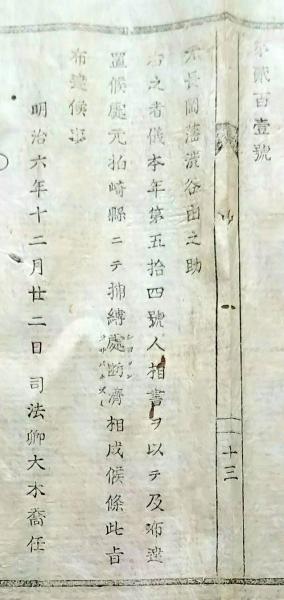 第貳百壹號
十三
元長岡藩澁谷由之助
右之者儀本年第五拾四號人相書ヲ以テ及布達
置候處元柏崎縣ニテ捕縛處断濟相成候條此旨
布達候事
明治六年十二月廿二日司法卿大木喬任